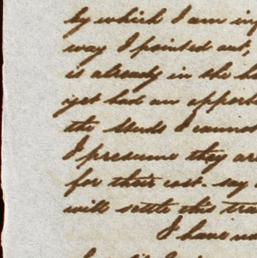 by which I am in
way I pointed out,
is already in the h
yet had an opport
the Studs I cannot
I presume they are
for their cost - say
will settle this tra
I have no